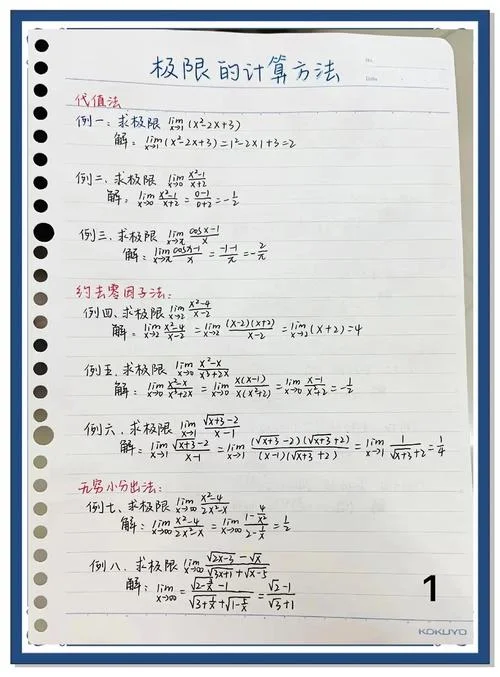 极限的计算方法
No.
Date
代值法
例一、求极限 lim x→1 (x²-2x+3)
解: lim x→1 (x²-2x+3)=1²-2×1+3=2
例二、求极限 lim x→0 (x²-1)/(x+2)
解: lim x→0 (x²-1)/(x+2) = (0-1)/(0+2) = -1/2
例三、求极限 lim x→π (cosx-1)/x
解: lim x→π (cosx-1)/x = (-1-1)/π = -2/π
约去零因子法:
例四、求极限 lim x→2 (x²-4)/(x-2)
解: lim x→2 (x²-4)/(x-2) = lim x→2 (x-2)(x+2)/(x-2) = lim x→2 (x+2)=4
例五、求极限 lim x→0 (x²-x)/(x³+2x)
解: lim x→0 (x²-x)/(x³+2x) = lim x→0 x(x-1)/x(x²+2) = lim x→0 (x-1)/(x²+2) = -1/2
例六、求极限 lim x→1 (√(x+3)-2)/(x-1)
解: lim x→1 (√(x+3)-2)/(x-1) = lim x→1 (√(x+3)-2)(√(x+3)+2)/(x-1)(√(x+3)+2) = lim x→1 1/(√(x+3)+2) = 1/4
无穷小分出法:
例七、求极限 lim x→∞ (x²-4)/(2x²-x)
解: lim x→∞ (x²-4)/(2x²-x) = lim x→∞ (1-4/x²)/(2-1/x) = 1/2
例八、求极限 lim x→∞ (√(2x-3)-√x)/(√(3x+1)+√(x-5))
解: lim x→∞ (√(2-3/x)-1)/(√(3+1/x)+√(1-5/x)) = (√2-1)/(√3+1)
1
KOKUYO